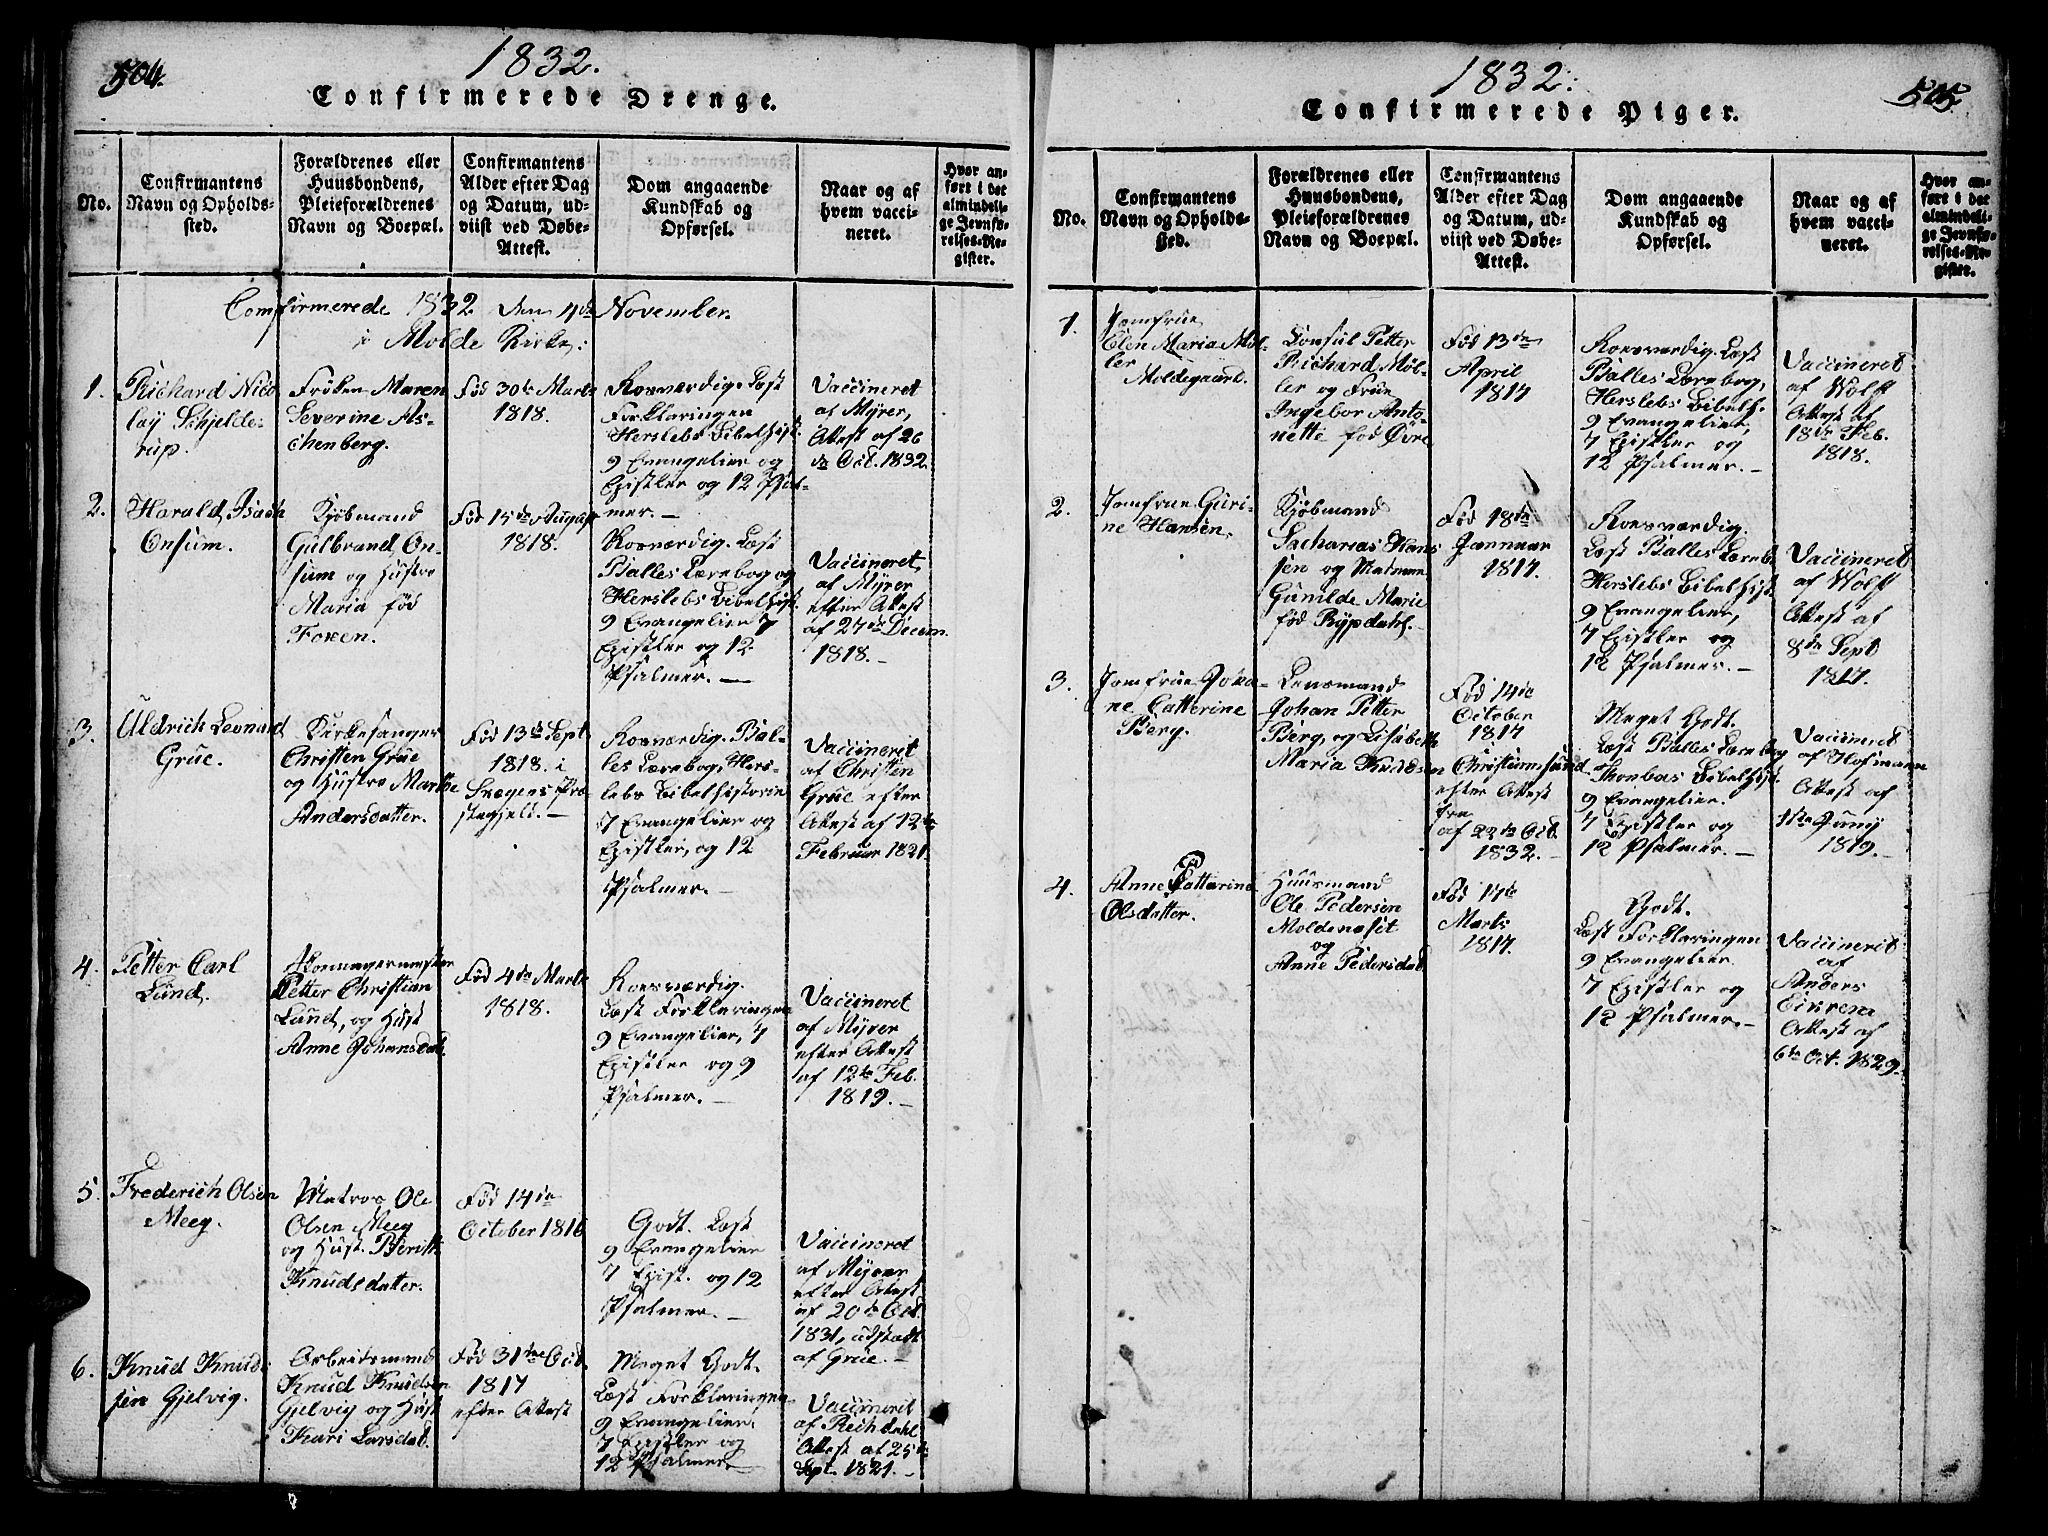 504.
1832.
Confirmerede Drenge.
No.
Confirmantens
Navn og Opholds-
sted.
Forældrenes eller
Huusbondens,
Pleieforældrenes
Navn og Boepæl.
Confirmantens
Alder efter Dag
og Datum, ud-
viist ved Døbe-
Attest.
Dom angaaende
Kundskab og
Opførsel.
Naar og af
hvem vacci-
neret.
Hvor an-
ført i det
almindeli-
ge Jevnfø-
relses-Re-
gister.
Confirmerede 1832 den 4de November
i Molde Kirke:
1.
Richard Nico
lay Schjelde-
rup.
Frøken Maren
Severine As-
chenberg.
Fød 30te Marts
1818.
Rosværdig. Læst
Forklaringen
Herslebs Bibelhist.
9 Evangelier og
Epistler og 12 Psal-
mer. —
Vaccineret
af Myrer,
Attest af 26
de Oct. 1832.
2.
Harald Isach
Onsum.
Kjøbmand
Gulbrand On-
sum og Hustro
Maria fød
Foxen.
Fød 15de August
1818.
Rosværdig. Læst
Balles Lærebog og
Herslebs Bibelhist.
9 Evangelier 7
Epistler og 12
Psalmer. —
Vaccineret
af Myrer
efter Attest
af 27de Decem.
1818. —
3.
Uldrich Leonard
Grüe.
Kirkesanger
Christen Grüe
og Hustro Marthe
Andersdatter.
Fød 13de Sept
1818. i
Snegens Præ-
stegjeld. —
Rosværdig. Bal-
les Lærebog, Hers-
lebs Bibelhistorie
7 Evangelier og
Epistler, og 12
Psalmer. —
Vaccineret
af Christen
Grüe efter
Attest af 12te
Februar 1821.
4.
Petter Carl
Lund.
Petter Christian
Lund, og Hust
Anne Johansdat.
Fød 4de Marts
1818.
Roesværdig.
Læst Forklaringen
9 Evangelier, 7
Epistler og 9
Psalmer. —
Vaccineret
af Myrer
efter Attest
af 12te Feb.
1819. —
5.
Frederich Olsen
Meeg.
Matros Ole
Olsen Meeg
og Hust. Berith
Knudsdatter.
Fød 14de
October 1816
Godt. Læst
9 Evangelier
7 Epist. og 12
Psalmer. —
Vaccineret
af Myrer
efter Attest
af 20de Oct.
1831, udstædt
af Grüe. —
6.
Knud Knud-
sen Gjelvig.
Arbeidsmand
Knud Knudsen
Gjelvig og Hust
Kari Larsdat.
Fød 31te Octb.
1817
efter Attest
Meget Godt.
Læst Forklaringen
9 Evangelier
7 Epistler og
12 Psalmer —
Vaccineret
af Rechdahl
Attest af 25de
Sept. 1821. —
1832.
505
Confirmerede Piger.
No.
Confirmantens
Navn og Opholds-
sted.
Forældrenes eller
Huusbondens,
Pleieforældrenes
Navn og Boepæl.
Confirmantens
Alder efter Dag
og Datum, ud-
viist ved Døbe-
Attest.
Dom angaaende
Kundskab og
Opførsel.
Naar og af
hvem vacci-
neret.
Hvor an-
ført i det
almindeli-
ge Jevnfø-
relses-Re-
gister.
1.
Jomfrue
Elen Maria Møl-
ler
Moldegaard.
Consul Petter
Richard Møl-
ler og Frue
Ingebor Anto-
nette fød Øvre
Fød 13de
April
1817
Roesværdig. Læst
Balles Lærebog,
Herslebs Bibelh.
9 Evangelier,
7 Epistler og
12 Psalmer. —
Vaccineret
af Wolff
Attest af
18de Feb.
1818.
2.
Jomfrue Guri-
ne Hansen.
Kjøbmand
Sacharias Han-
sen og Madame
Gunilde Marie
fød Rypdahl.
Fød 18de
Januar
1817.
Roesværdig.
Læst Balles Læreb.
Herslebs Bibelhist
9 Evangelier,
7 Epistler og
12 Psalmer. —
Vaccineret
af Wolff
Attest af
8de Sept
1817.
3.
Jomfrue Joha-
ne Catterine
Berg.
Lensmand
Johan Petter
Berg, og Lisabeth
Maria Knudsen
Fød 14de
October
1817
Christiansund.
efter Attest
fra
af 22de Oct.
1832. —
Meget Godt.
Læst Balles Lærebog
Thonboes Bibelhist
9 Evangelier.
7 Epistler og
12 Psalmer. —
Vaccineret
af Hofmann
Attest af
1ste Juny
1819. —
4.
Anne Cattarina
Olsdatter.
Huusmand
Ole Pedersen
Moldenæsit
og
Anne Pedersdat
Fød 17de
Marts
1817.
Godt.
Læst Forklaringen
9 Evangelier.
7 Epistler og
12 Psalmer. —
Vaccineret
af
Anders
Eikrem
Attest af
6te Oct. 1829.